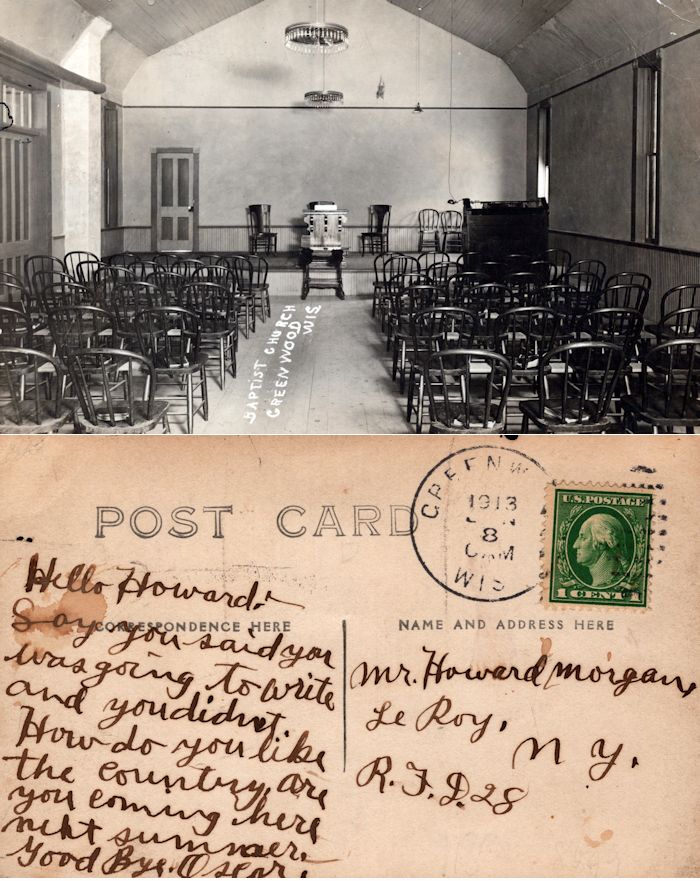 BAPTIST CHURCH
GREENWOOD
WIS
POST CARD
GREENW
1913
8
AM
WIS
U.S. POSTAGE
1 CENT 1
CORRESPONDENCE HERE
NAME AND ADDRESS HERE
Hello Howard:-
Say you said you
was going to write
and you didn't
How do you like
the country, are
you coming here
next summer.
Good Bye. Oscar.
Mr. Howard Morgan,
Le Roy,
N Y.
R.F.D. 28